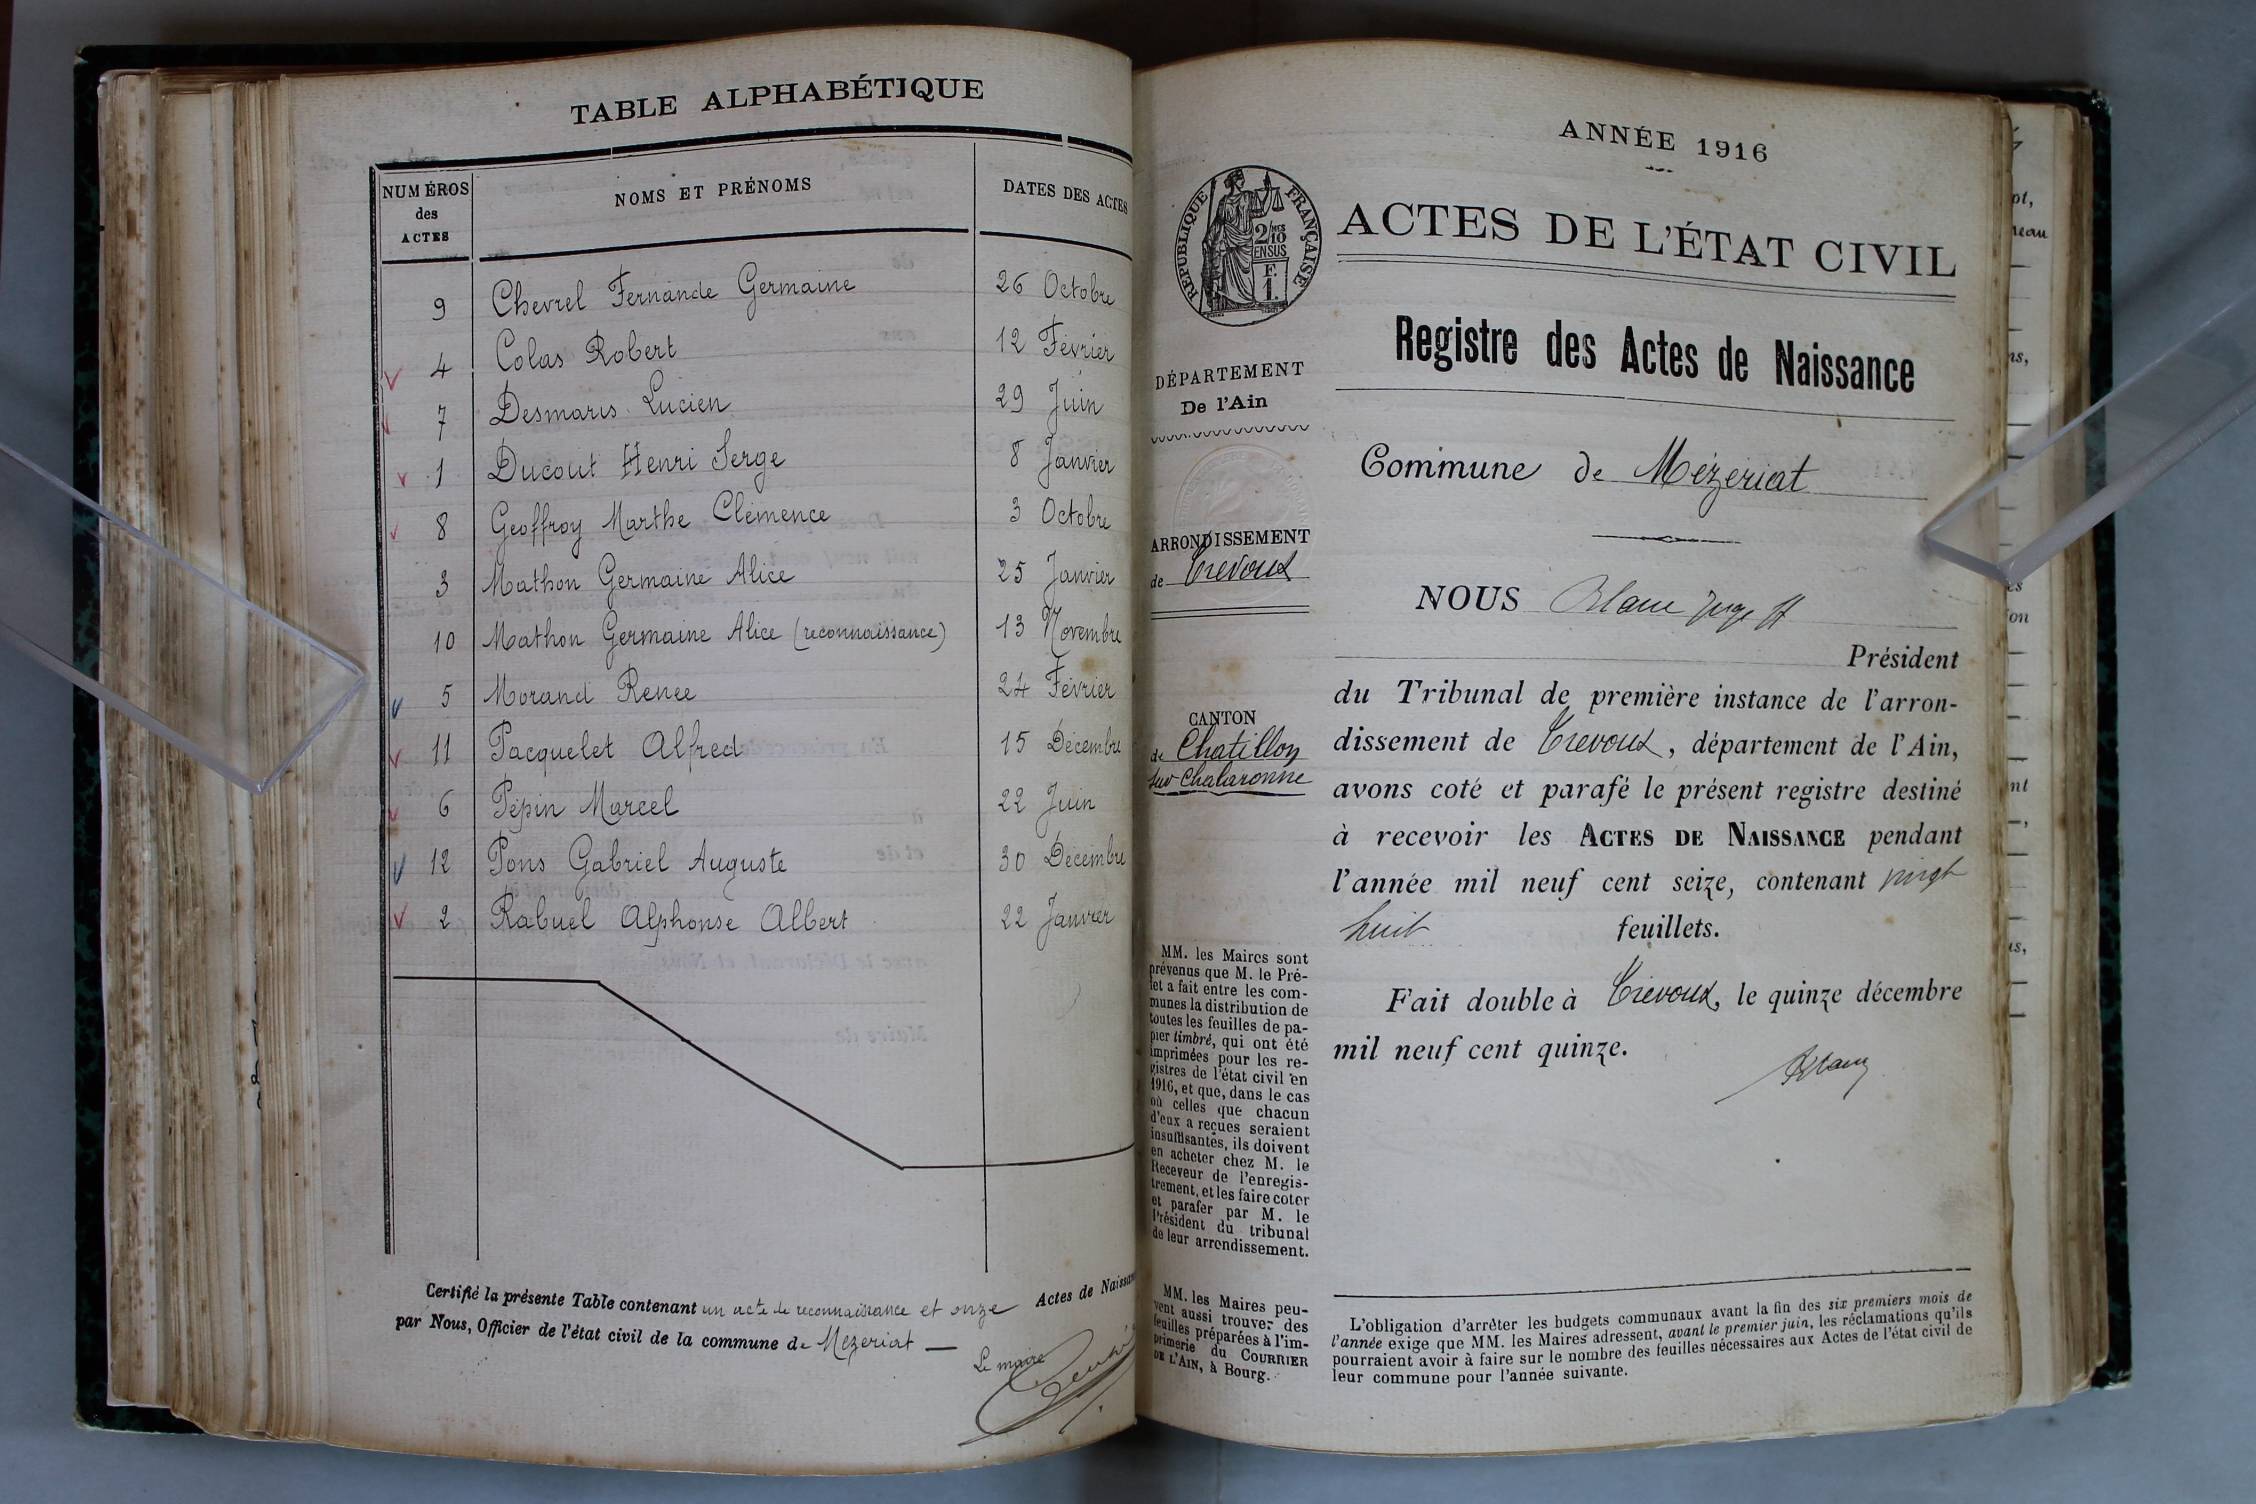 TABLE ALPHABÉTIQUE
NUMÉROS
des
ACTES
NOMS ET PRÉNOMS
DATES DES ACTES
9 Chevrel Fernande Germaine 26 Octobre
4 Colas Robert 12 Février
7 Desmaris Lucien 29 Juin
1 Ducout Henri Serge 8 Janvier
8 Geoffroy Marthe Clémence 3 Octobre
3 Mathon Germaine Alice 25 Janvier
10 Mathon Germaine Alice (reconnaissance) 13 Novembre
5 Morand Renée 24 Février
11 Pacquelet Alfred 15 Décembre
6 Pépin Marcel 22 Juin
12 Pons Gabriel Auguste 30 Décembre
2 Rabuel Alphonse Albert 22 Janvier
Certifié la présente Table contenant un acte de reconnaissance et onze Actes de Naissan
par Nous, Officier de l'état civil de la commune de Mézeriat
Le maire
ANNÉE 1916
RÉPUBLIQUE FRANÇAISE
2/10
MES
EN SUS
F.
1.
ACTES DE L'ÉTAT CIVIL
Registre des Actes de Naissance
DÉPARTEMENT
De l'Ain
Commune de Mézériat
ARRONDISSEMENT
de Trévoux
NOUS Blanc Juge
Président
du Tribunal de première instance de l'arron-
dissement de Trévoux, département de l'Ain,
avons coté et parafé le présent registre destiné
à recevoir les ACTES DE NAISSANCE pendant
l'année mil neuf cent seize, contenant vingt
huit feuillets.
Fait double à Trévoux, le quinze décembre
mil neuf cent quinze.
Blanc
CANTON
de Chatillon
sur Chalaronne
MM. les Maires sont
prévenus que M. le Pré-
fet a fait entre les com-
munes la distribution de
toutes les feuilles de pa-
pier timbré, qui ont été
imprimées pour les re-
gistres de l'état civil en
1916, et que, dans le cas
où celles que chacun
d'eux a reçues seraient
insuffisantes, ils doivent
en acheter chez M. le
Receveur de l'enregis-
trement, et les faire coter
et parafer par M. le
Président du tribunal
de leur arrondissement.
MM. les Maires peu-
vent aussi trouver des
feuilles préparées à l'im-
primerie du COURRIER
DE L'AIN, à Bourg.
L'obligation d'arrêter les budgets communaux avant la fin des six premiers mois de
l'année exige que MM. les Maires adressent, avant le premier juin, les réclamations qu'ils
pourraient avoir à faire sur le nombre des feuilles nécessaires aux Actes de l'état civil de
leur commune pour l'année suivante.